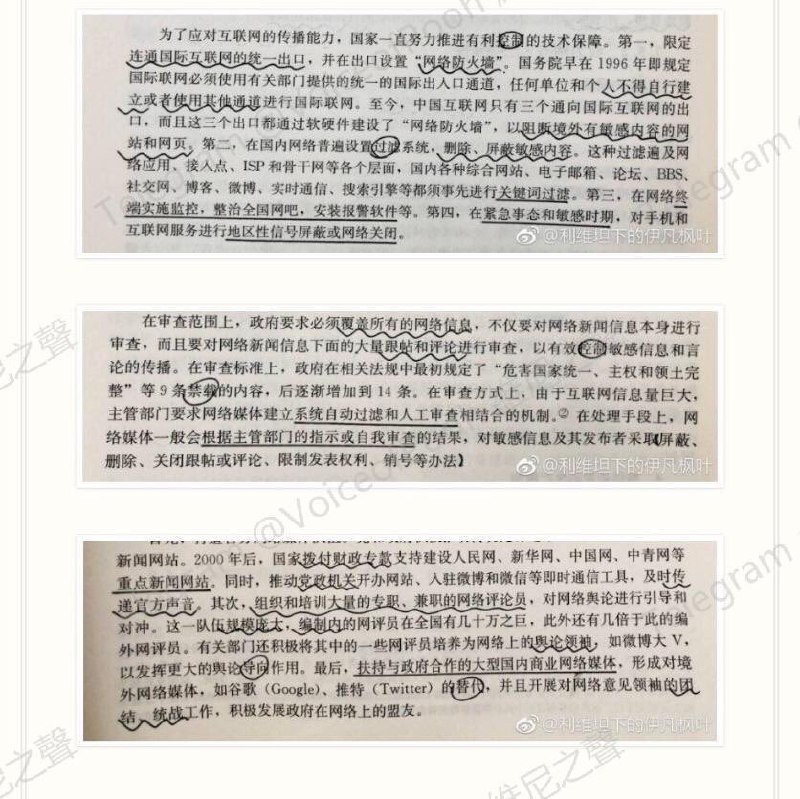 为了应对互联网的传播能力，国家一直努力推进有利控制的技术保障。第一，限定
连通国际互联网的统一出口，并在出口设置“网络防火墙”。国务院早在 1996 年即规定
国际联网必须使用有关部门提供的统一的国际出入口通道，任何单位和个人不得自行建
立或者使用其他通道进行国际联网。至今，中国互联网只有三个通向国际互联网的出
口，而且这三个出口都通过软硬件建设了“网络防火墙”，以阻断境外有敏感内容的网
站和网页。第二，在国内网络普遍设置过滤系统，删除、屏蔽敏感内容。这种过滤遍及网
络应用、接入点、ISP 和骨干网等各个层面，国内各种综合网站、电子邮箱、论坛、BBS、
社交网、博客、微博、实时通信、搜索引擎等都须事先进行关键词过滤。第三，在网络终
端实施监控，整治全国网吧，安装报警软件等。第四，在紧急事态和敏感时期，对手机和
互联网服务进行地区性信号屏蔽或网络关闭。
@利维坦下的伊凡枫叶
在审查范围上，政府要求必须覆盖所有的网络信息，不仅要对网络新闻信息本身进行
审查，而且要对网络新闻信息下面的大量跟帖和评论进行审查，以有效控制敏感信息和言
论的传播。在审查标准上，政府在相关法规中最初规定了“危害国家统一、主权和领土完
整”等 9 条禁载的内容，后逐渐增加到 14 条。在审查方式上，由于互联网信息量巨大，
主管部门要求网络媒体建立系统自动过滤和人工审查相结合的机制。② 在处理手段上，网
络媒体一般会根据主管部门的指示或自我审查的结果，对敏感信息及其发布者采取屏蔽、
删除、关闭跟帖或评论、限制发表权利、销号等办法】
@利维坦下的伊凡枫叶
新闻网站。2000 年后，国家拨付财政专款支持建设人民网、新华网、中国网、中青网等
重点新闻网站。同时，推动党政机关开办网站、入驻微博和微信等即时通信工具，及时传
递官方声音。其次，组织和培训大量的专职、兼职的网络评论员，对网络舆论进行引导和
对冲。这一队伍规模庞大，编制内的网评员在全国有几十万之巨，此外还有几倍于此的编
外网评员。有关部门还积极将其中的一些网评员培养为网络上的舆论领袖，如微博大 V，
以发挥更大的舆论导向作用。最后，扶持与政府合作的大型国内商业网络媒体，形成对境
外网络媒体，如谷歌（Google）、推特（Twitter）的替代，并且开展对网络意见领袖的团
结、统战工作，积极发展政府在网络上的盟友。
@利维坦下的伊凡枫叶